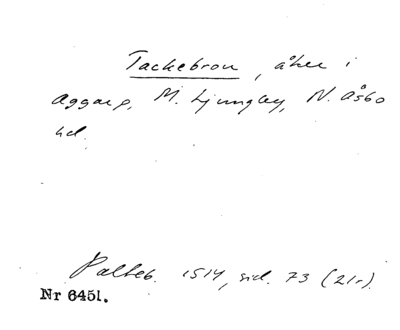 Tackebron, åker i
Aggarp, M. Ljungby, N. Åsbo
hd.
Palteb. 1514, sid. 73 (21r).
Nr 6451.